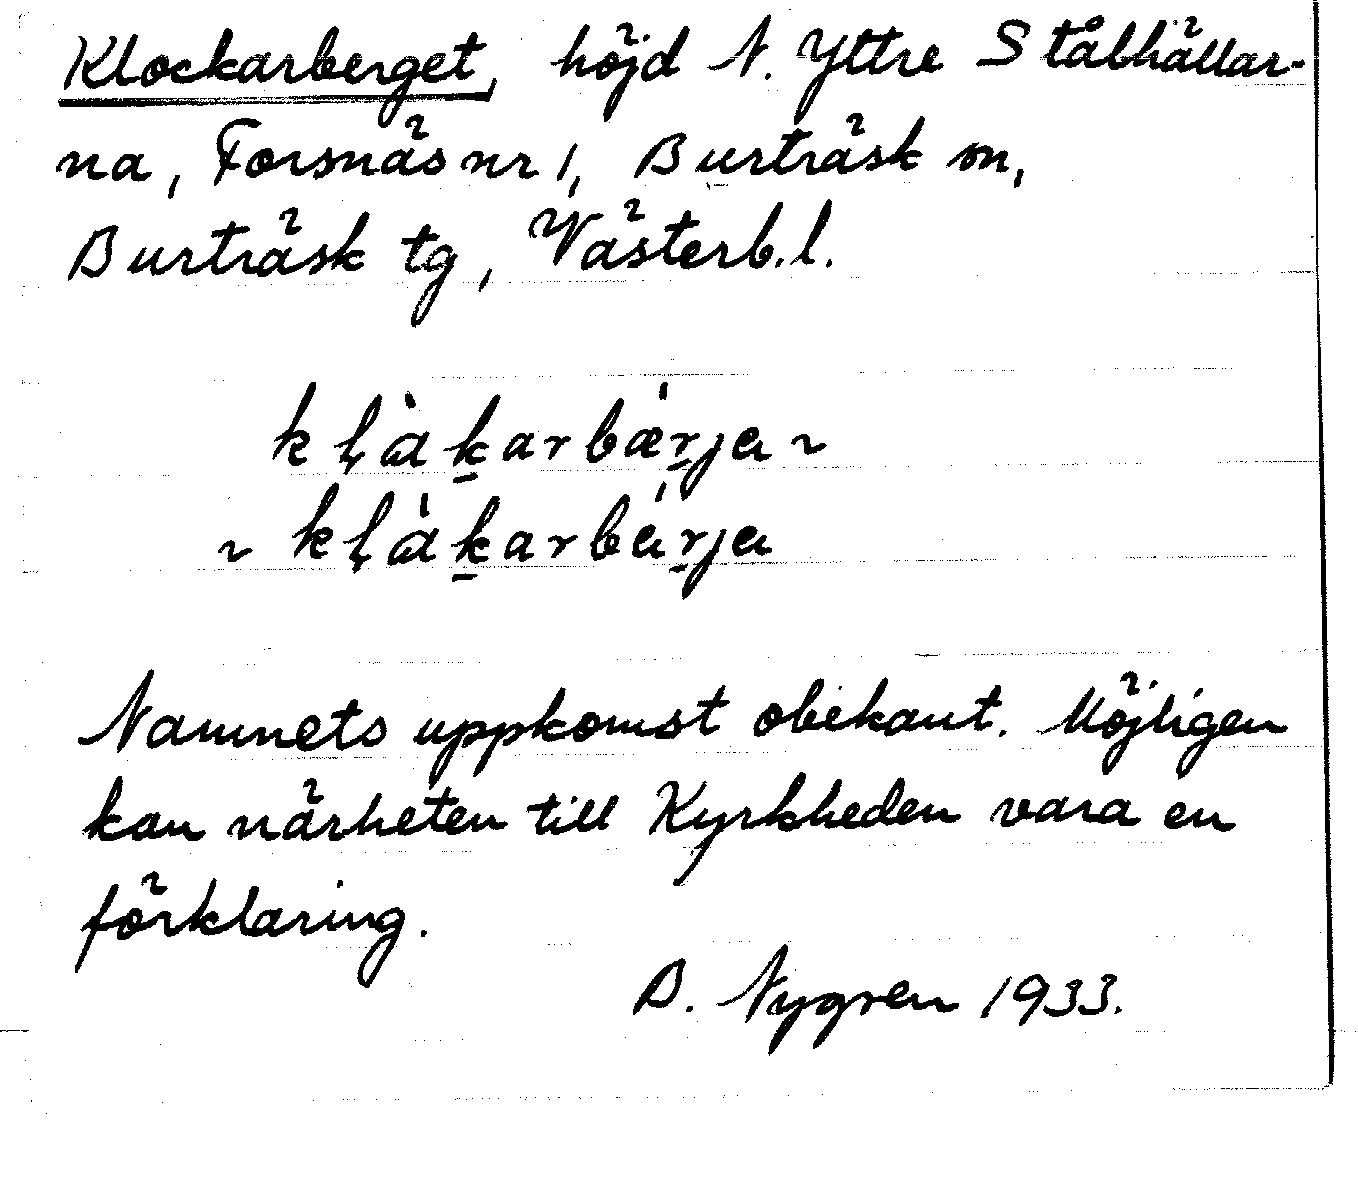 Klockarberget, höjd N. Yttre Stålhällar-
na, Forsnäs nr 1, Burträsk sn,
Burträsk tg, Västerb.l.
kḷὰḵarbǽṟja ~
~ kḷὰḵarbáṟja
Namnets uppkomst obekant. Möjligen
kan närheten till Kyrkheden vara en
förklaring.
B. Nygren 1933.